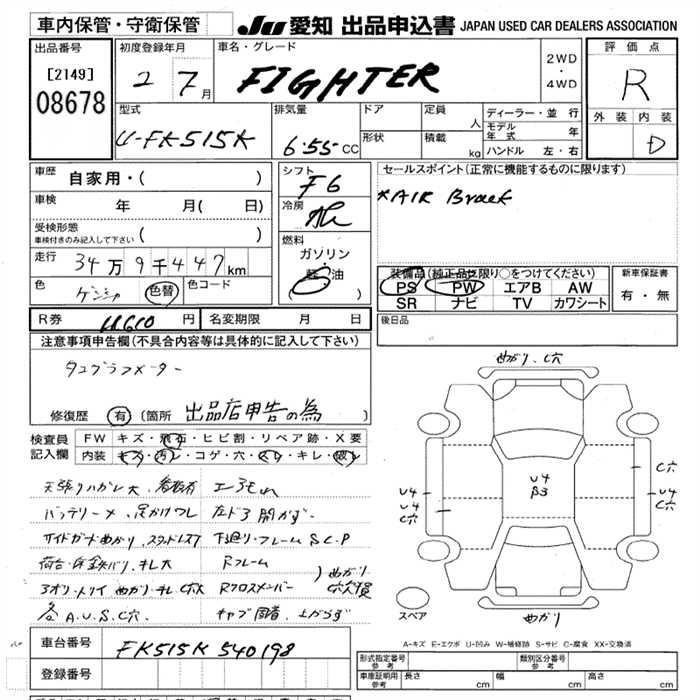 車内保管・守衛保管
JU 愛知 出品申込書 JAPAN USED CAR DEALERS ASSOCIATION
出品番号
[2149]
08678
初度登録年月
2 7月
車名・グレード
FIGHTER
2WD
・
4WD
評価点
R
外装 内装
D
型式
U-FK515K
排気量
6.55 CC
ドア
定員
人
形状
積載
kg
ディーラー・並行
モデル年式 年
ハンドル 左・右
車歴
自家用・( )
車検
年 月( 日)
受検形態
車検付きのみ記入して下さい ( )
走行
34万9千447km
色
色替
色コード
シフト
F6
冷房
燃料
ガソリン
軽油
セールスポイント(正常に機能するものに限ります)
*AIR Brack
装備品(純正品に限り○をつけてください)
PS PW エアB AW
SR ナビ TV カワシート
新車保証書
有・無
R券 円
名変期限 月 日
後日品
注意事項申告欄(不具合内容等は具体的に記入して下さい)
タコグラフメーター
修復歴 有(箇所 出品店申告の為
検査員記入欄
FW キズ・飛石・ヒビ割・リペア跡・X要
内装 キズ・汚レ・コゲ・穴・スレ・キレ・
天張りハガレ大
バッテリーメ
左ドア開かず
サイドガード曲がり
下廻り・フレームS.C.P
Rフレーム
Rクロスメンバー
曲がり
各A.U.S.C穴
キャブ固着 上がらず
曲がり.C穴
C穴
U4
B3
U4
U4
C穴
U4
C穴
曲がり
スペア
A-キズ E-エクボ U-凹み W-補修跡 S-サビ C-腐食 XX-交換済
車台番号
FK515K 540198
登録番号
形式指定番号
参考
類別区分番号
参考
車庫証明用
参考
長さ cm
幅 cm
高さ cm